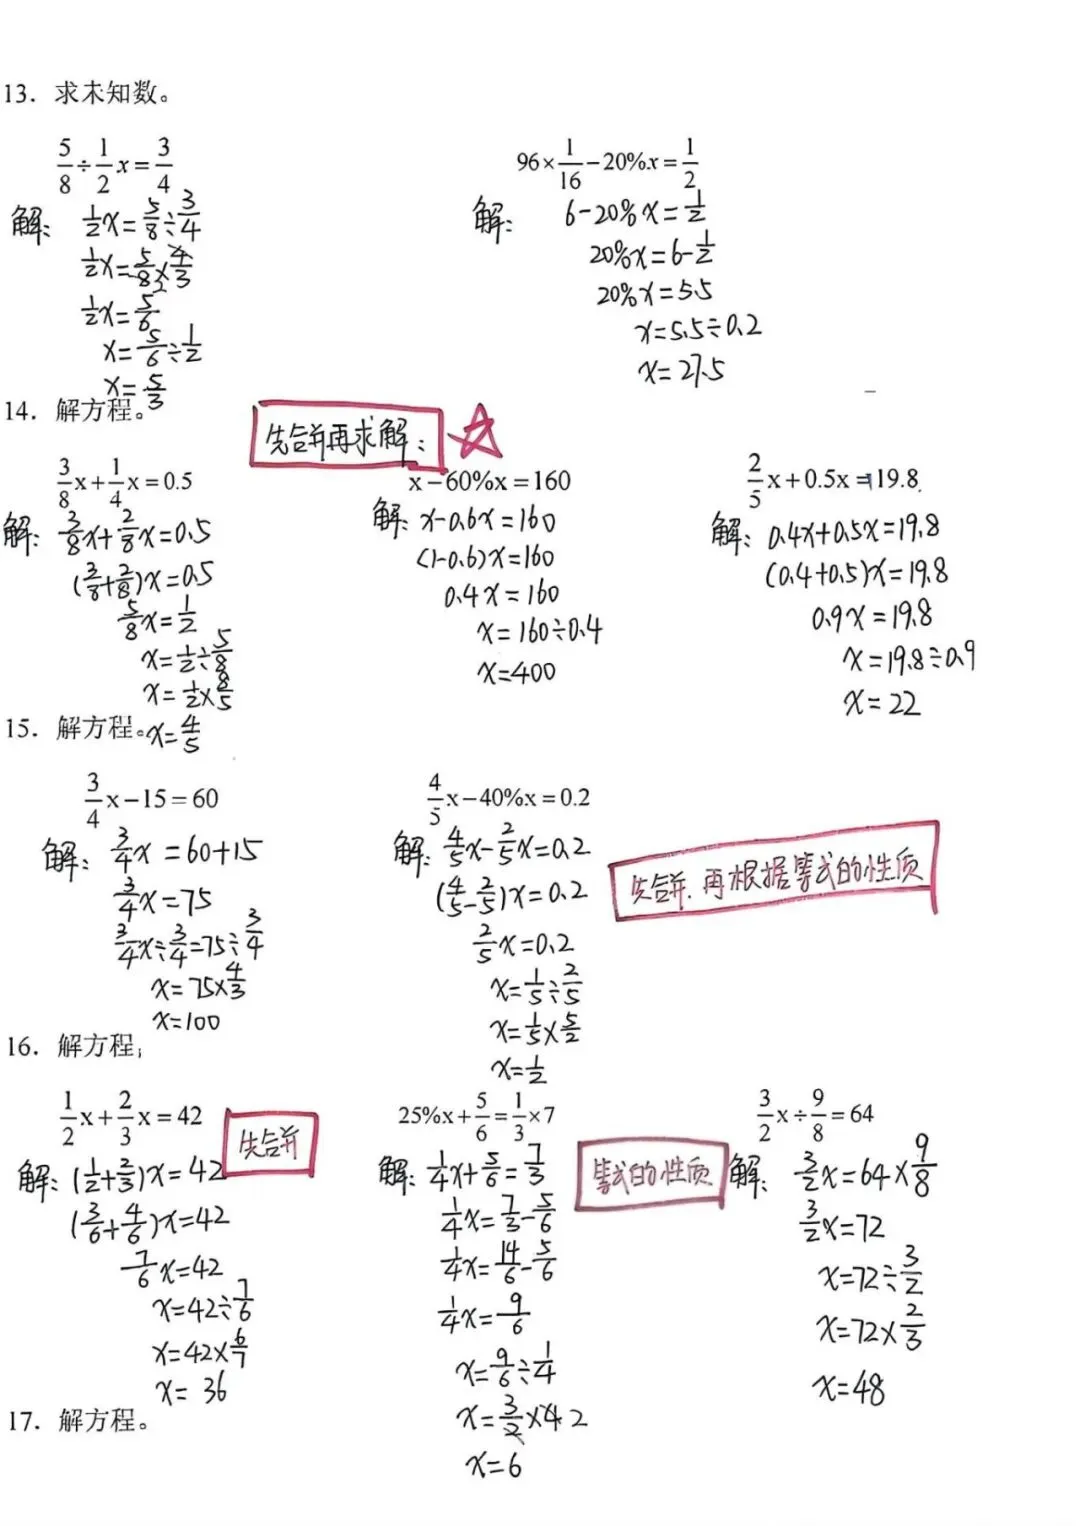 13．求未知数。
5/8÷1/2x=3/4
解: 1/2x=5/8÷3/4
1/2x=5/8×4/3
1/2x=5/6
x=5/6÷1/2
x=5/3
96×1/16-20%x=1/2
解: 6-20%x=1/2
20%x=6-1/2
20%x=5.5
x=5.5÷0.2
x=27.5
14．解方程。
先合并再求解:
3/8x+1/4x=0.5
解: 3/8x+2/8x=0.5
(3/8+2/8)x=0.5
5/8x=1/2
x=1/2÷5/8
x=1/2×8/5
x=4/5
x-60%x=160
解: x-0.6x=160
(1-0.6)x=160
0.4x=160
x=160÷0.4
x=400
2/5x+0.5x=19.8
解: 0.4x+0.5x=19.8
(0.4+0.5)x=19.8
0.9x=19.8
x=19.8÷0.9
x=22
15．解方程。
3/4x-15=60
解: 3/4x=60+15
3/4x=75
3/4x÷3/4=75÷3/4
x=75×4/3
x=100
4/5x-40%x=0.2
解: 4/5x-2/5x=0.2
(4/5-2/5)x=0.2
2/5x=0.2
x=1/5÷2/5
x=1/5×5/2
x=1/2
先合并.再根据等式的性质
16．解方程;
1/2x+2/3x=42
先合并
解: (1/2+2/3)x=42
(3/6+4/6)x=42
7/6x=42
x=42÷7/6
x=42×6/7
x=36
25%x+5/6=1/3×7
等式的性质
解: 1/4x+5/6=7/3
1/4x=7/3-5/6
1/4x=14/6-5/6
1/4x=9/6
x=9/6÷1/4
x=3/2×4 2
x=6
3/2x÷9/8=64
解: 3/2x=64×9/8
3/2x=72
x=72÷3/2
x=72×2/3
x=48
17．解方程。